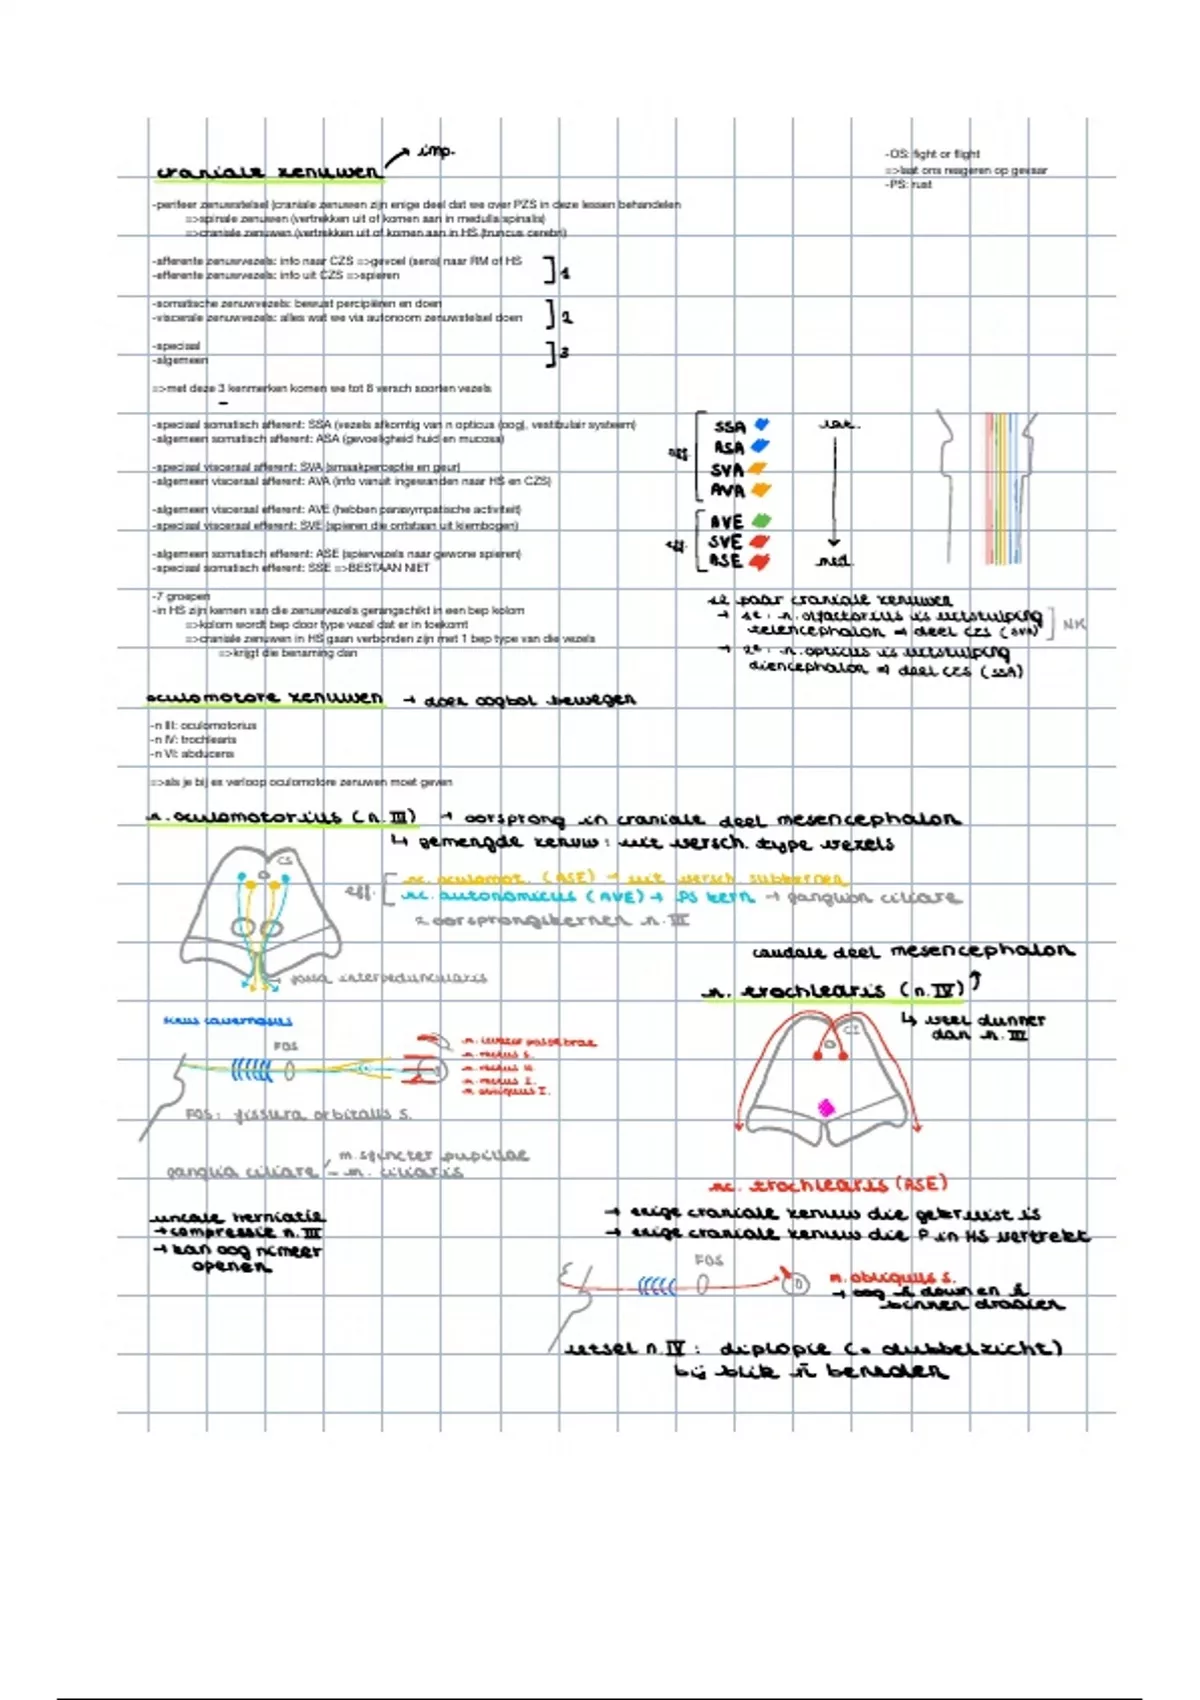 craniale zenuwen
imp.
-OS: fight or flight
=>laat ons reageren op gevaar
-PS: rust
-perifeer zenuwstelsel (craniale zenuwen zijn enige deel dat we over PZS in deze lessen behandelen
=>spinale zenuwen (vertrekken uit of komen aan in medulla spinalis)
=>craniale zenuwen (vertrekken uit of komen aan in HS (truncus cerebri)
-afferente zenuwvezels: info naar CZS =>gevoel (sens) naar RM of HS
-efferente zenuwvezels: info uit CZS =>spieren
1
-somatische zenuwvezels: bewust percipiëren en doen
-viscerale zenuwvezels: alles wat we via autonoom zenuwstelsel doen
2
-speciaal
-algemeen
3
=>met deze 3 kenmerken komen we tot 8 versch soorten vezels
-speciaal somatisch afferent: SSA (vezels afkomtig van n opticus (oog), vestibulair systeem)
-algemeen somatisch afferent: ASA (gevoeligheid huid en mucosa)
-speciaal visceraal afferent: SVA (smaakperceptie en geur)
-algemeen visceraal afferent: AVA (info vanuit ingewanden naar HS en CZS)
-algemeen visceraal efferent: AVE (hebben parasympatische activiteit)
-speciaal visceraal efferent: SVE (spieren die ontstaan uit kiembogen)
-algemeen somatisch efferent: ASE (spiervezels naar gewone spieren)
-speciaal somatisch efferent: SSE =>BESTAAN NIET
aff.
SSA
ASA
SVA
AVA
eff.
AVE
SVE
ASE
lat.
med.
-7 groepen
-in HS zijn kernen van die zenuwvezels gerangschikt in een bep kolom
=>kolom wordt bep door type vezel dat er in toekomt
=>craniale zenuwen in HS gaan verbonden zijn met 1 bep type van die vezels
=>krijgt die benaming dan
12 paar craniale zenuwen
→ 1e: n. olfactorius is uitstulping
telencephalon → deel CZS (SVA)
→ 2e: n. opticus is uitstulping
diencephalon → deel CZS (SSA)
NK
oculomotore zenuwen → doen oogbol bewegen
-n III: oculomotorius
-n IV: trochlearis
-n VI: abducens
=>als je bij ex verloop oculomotore zenuwen moet geven
n. oculomotorius (n. III) → oorsprong in craniale deel mesencephalon
↳ gemengde zenuw: uit versch. type vezels
CS
eff.
nc. oculomot. (ASE) → uit versch subkernen
nc. autonomicus (AVE) → PS kern → ganglion ciliare
2 oorsprongskernen n. III
fossa interpeduncularis
caudale deel mesencephalon
n. trochlearis (n. IV)
↳ veel dunner
dan n. III
CI
sinus cavernosus
FOS
m. levator palpebrae
m. rectus s.
m. rectus M.
m. rectus I.
m. obliquus I.
FOS: fissura orbitalis s.
ganglia ciliare
m. sfincter pupillae
m. ciliaris
nc. trochlearis (ASE)
→ enige craniale zenuw die gekruist is
→ enige craniale zenuw die P in HS vertrekt
uncale herniatie
→ compressie n. III
→ kan oog nimeer
openen
FOS
m. obliquus s.
→ oog ñ down en ñ
binnen draaien
letsel n. IV: diplopie (= dubbelzicht)
bij blik ñ beneden